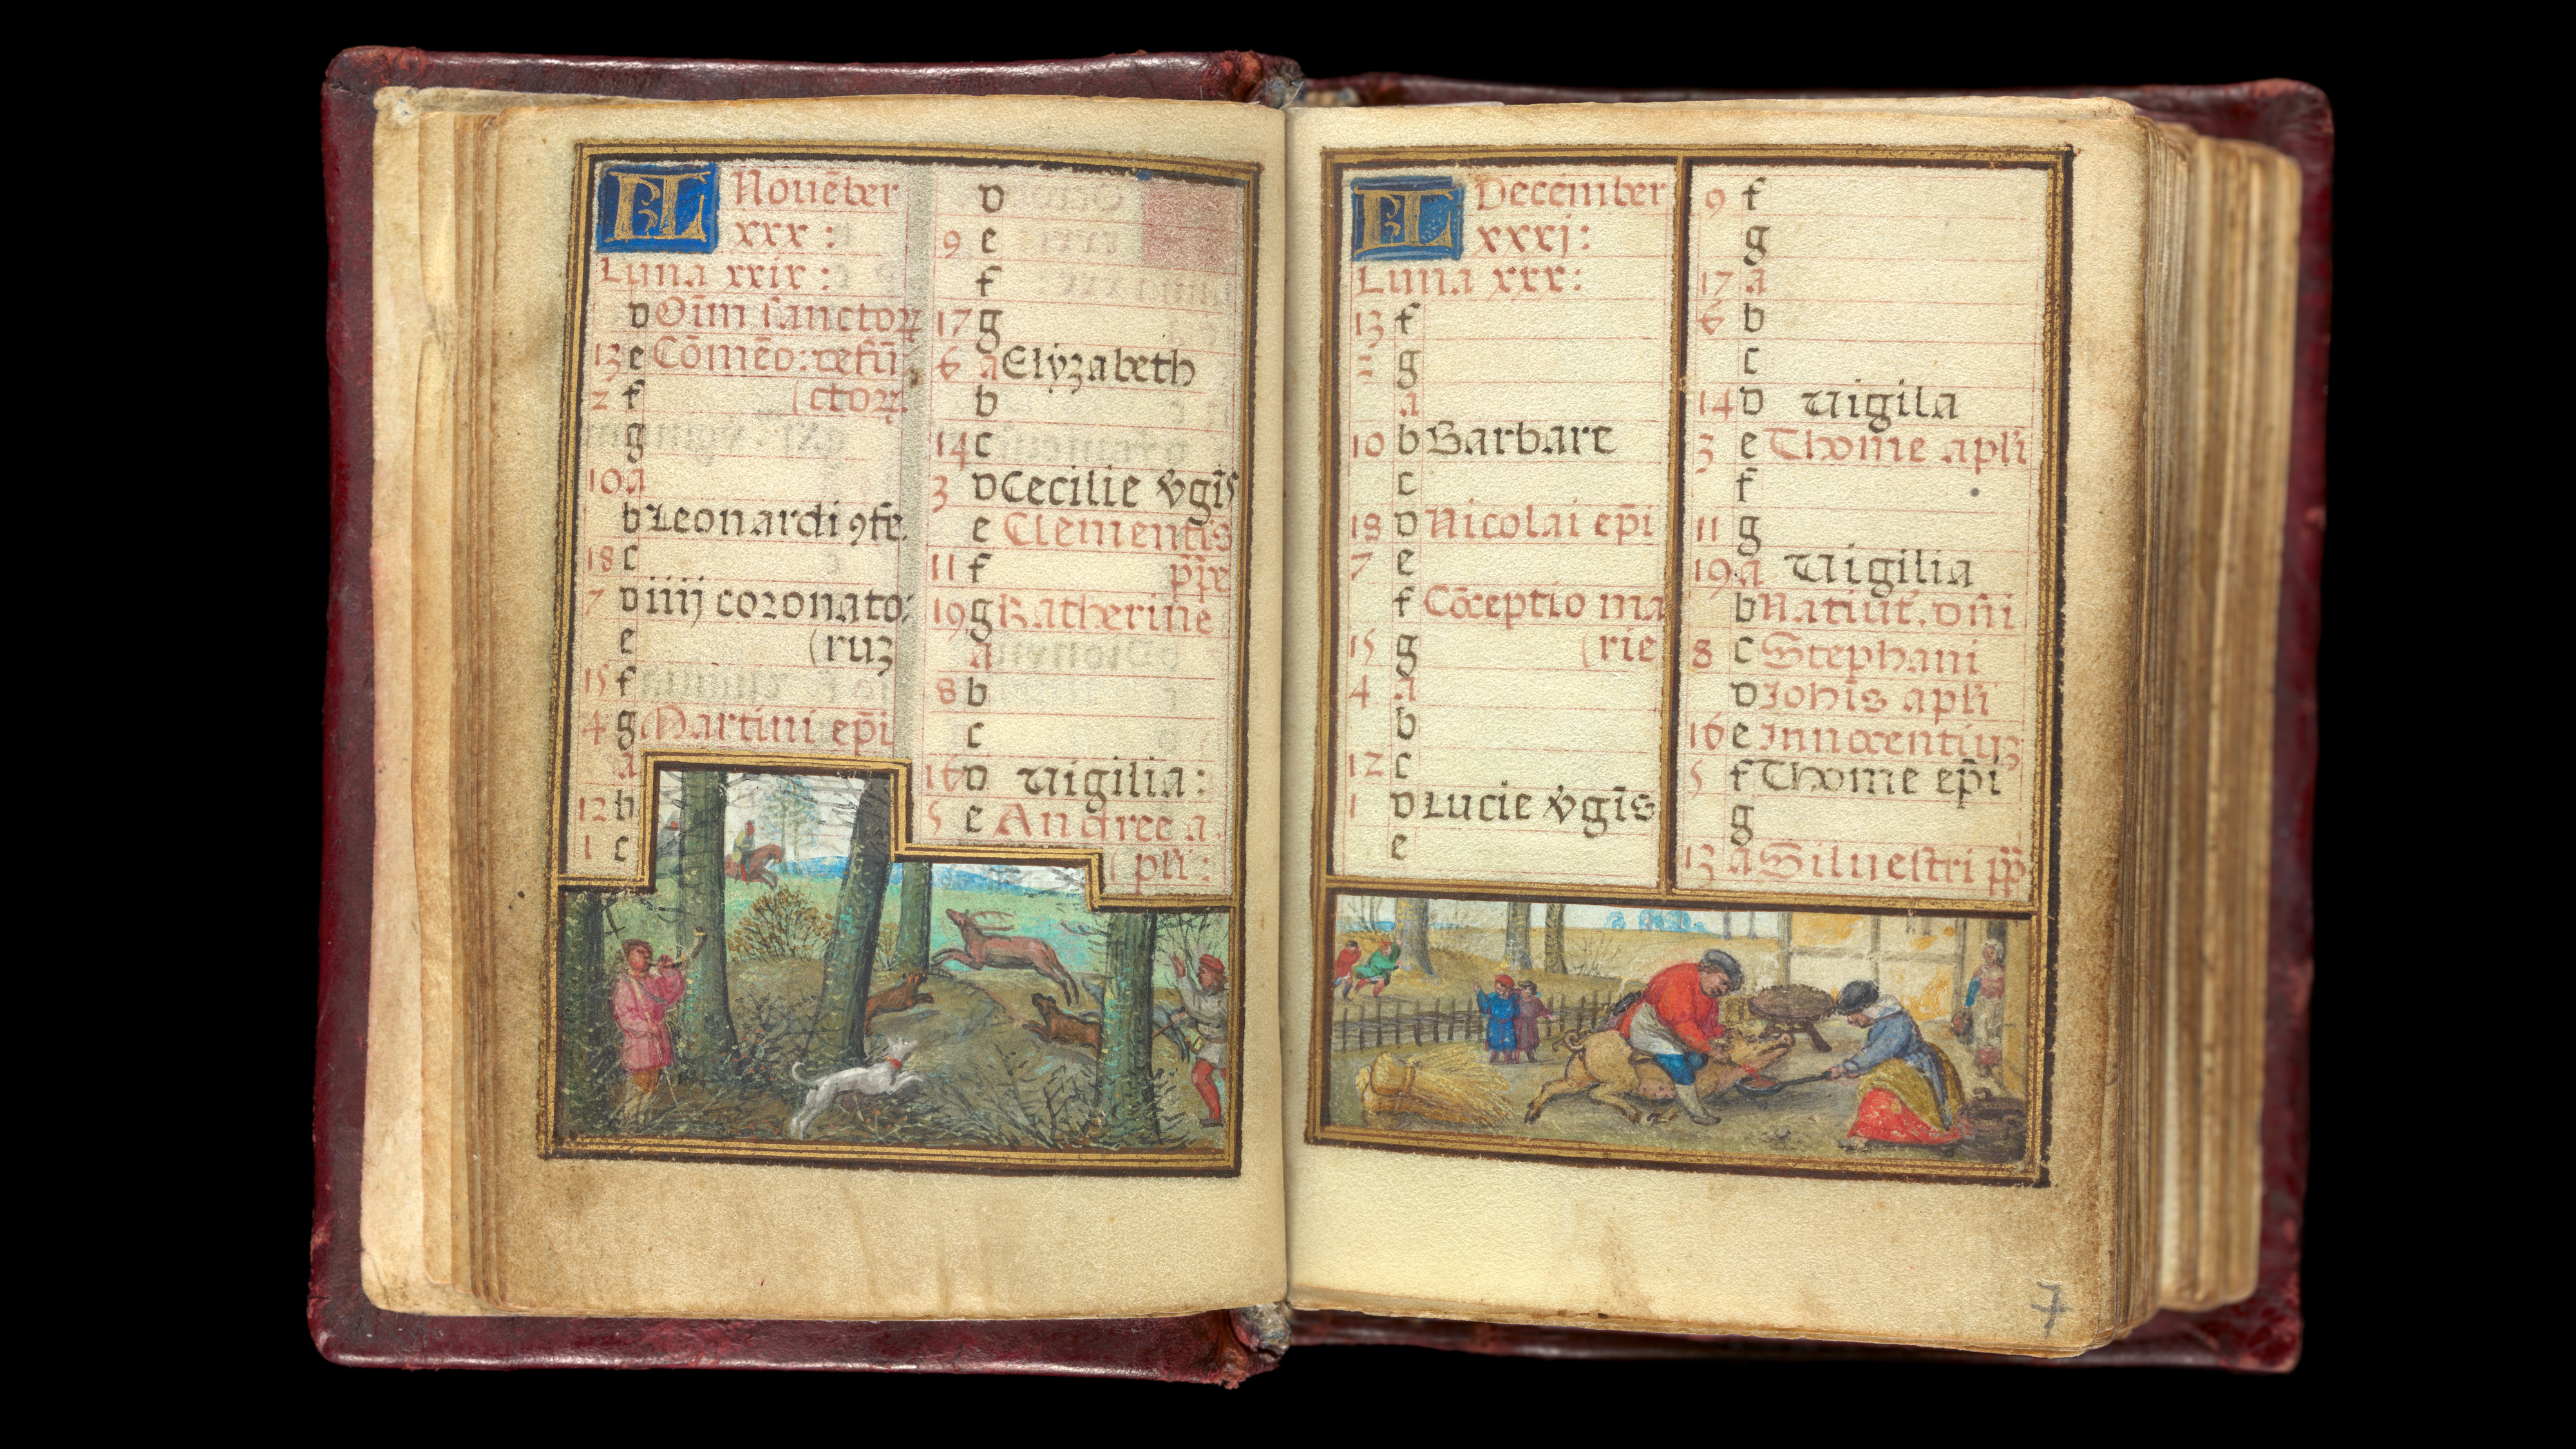 KL Nouēber
xxx :
Luna xxix :
d Oīm sanctoꝝ
13 e Cōmēd: defū
2 f (ctoꝝ.
g
10 a
b Leonardi ꝯfe.
18 c
7 d iiij coronato:
e (ruꝫ
15 f
4 g Martini ep̄i
a
12 b
1 c
d
9 e
f
17 g
6 a Elyzabeth
b
14 c
3 d Cecilie v̄gīs
e Clementis
11 f p̄pe
19 g Katherine
a
8 b
c
16 d Uigilia :
5 e Andree a.
( pl̄i :
KL December
xxxj :
Luna xxx :
13 f
2 g
a
10 b Barbare
c
18 d Nicolai ep̄i
7 e
f Cōceptio ma
15 g (rie
4 a
b
12 c
1 d Lucie v̄gīs
e
9 f
g
17 a
6 b
c
14 d Uigila
3 e Thome apl̄i
f
11 g
19 a Uigilia
b Natiuit. dn̄i
8 c Stephani
d Joh̄is apl̄i
16 e Innocentiuꝫ
5 f Thome ep̄i
g
13 a Siluestri p̄p
7